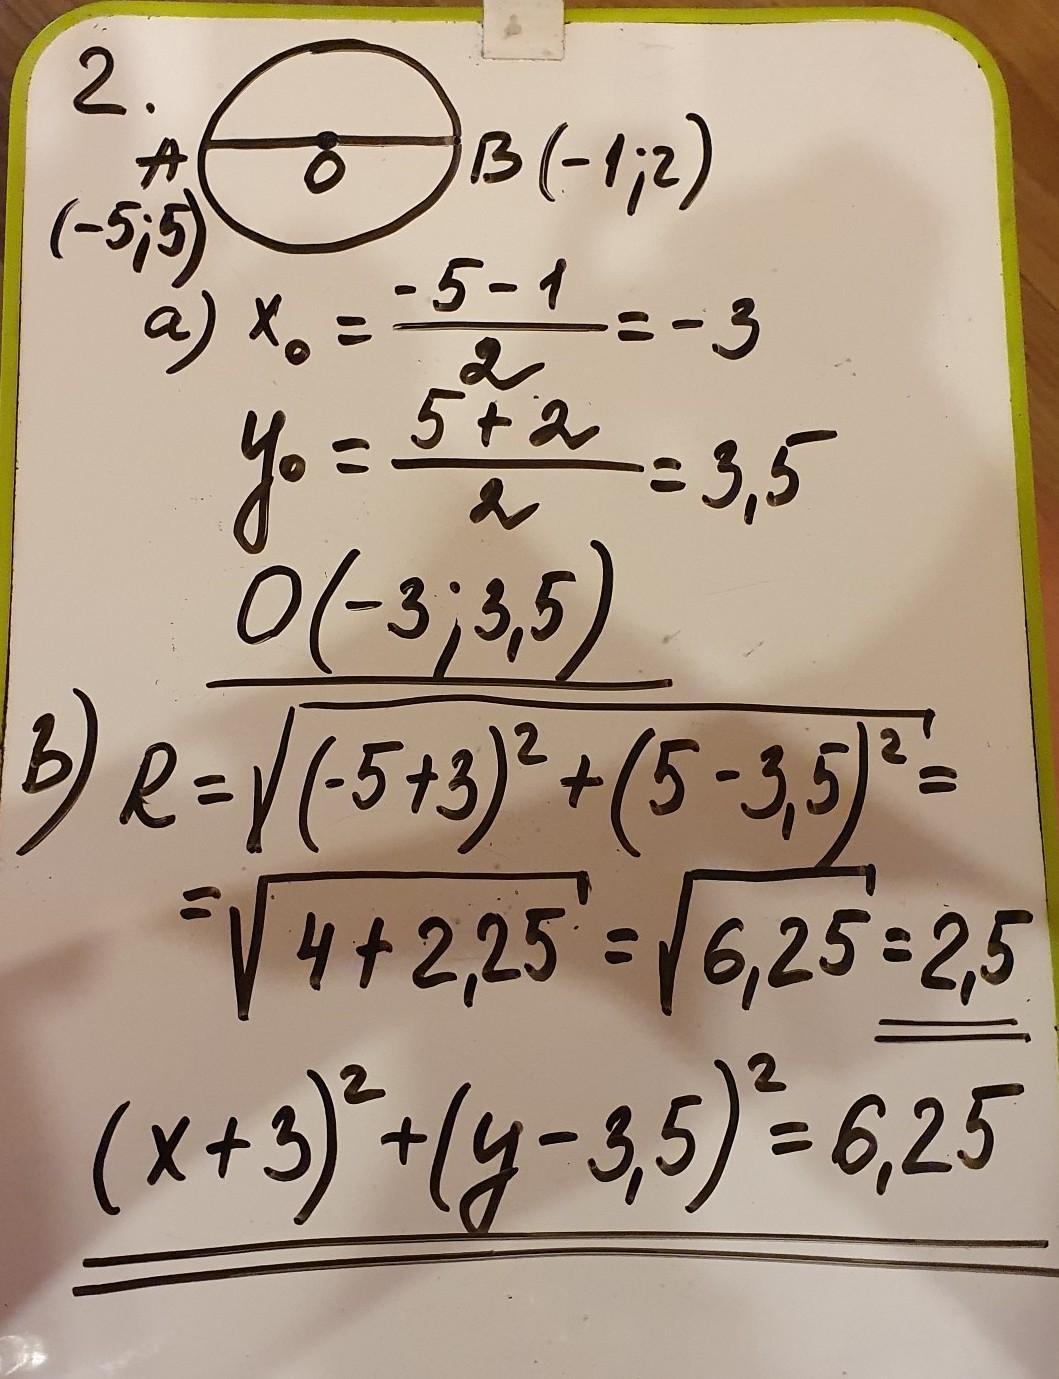 2.
A O B (-1;2)
(-5;5)
a) x₀ = (-5-1)/2 = -3
y₀ = (5+2)/2 = 3,5
O(-3;3,5)
B) R = √((-5+3)² + (5-3,5)²) =
= √(4+2,25) = √(6,25) = 2,5
(x+3)² + (y-3,5)² = 6,25